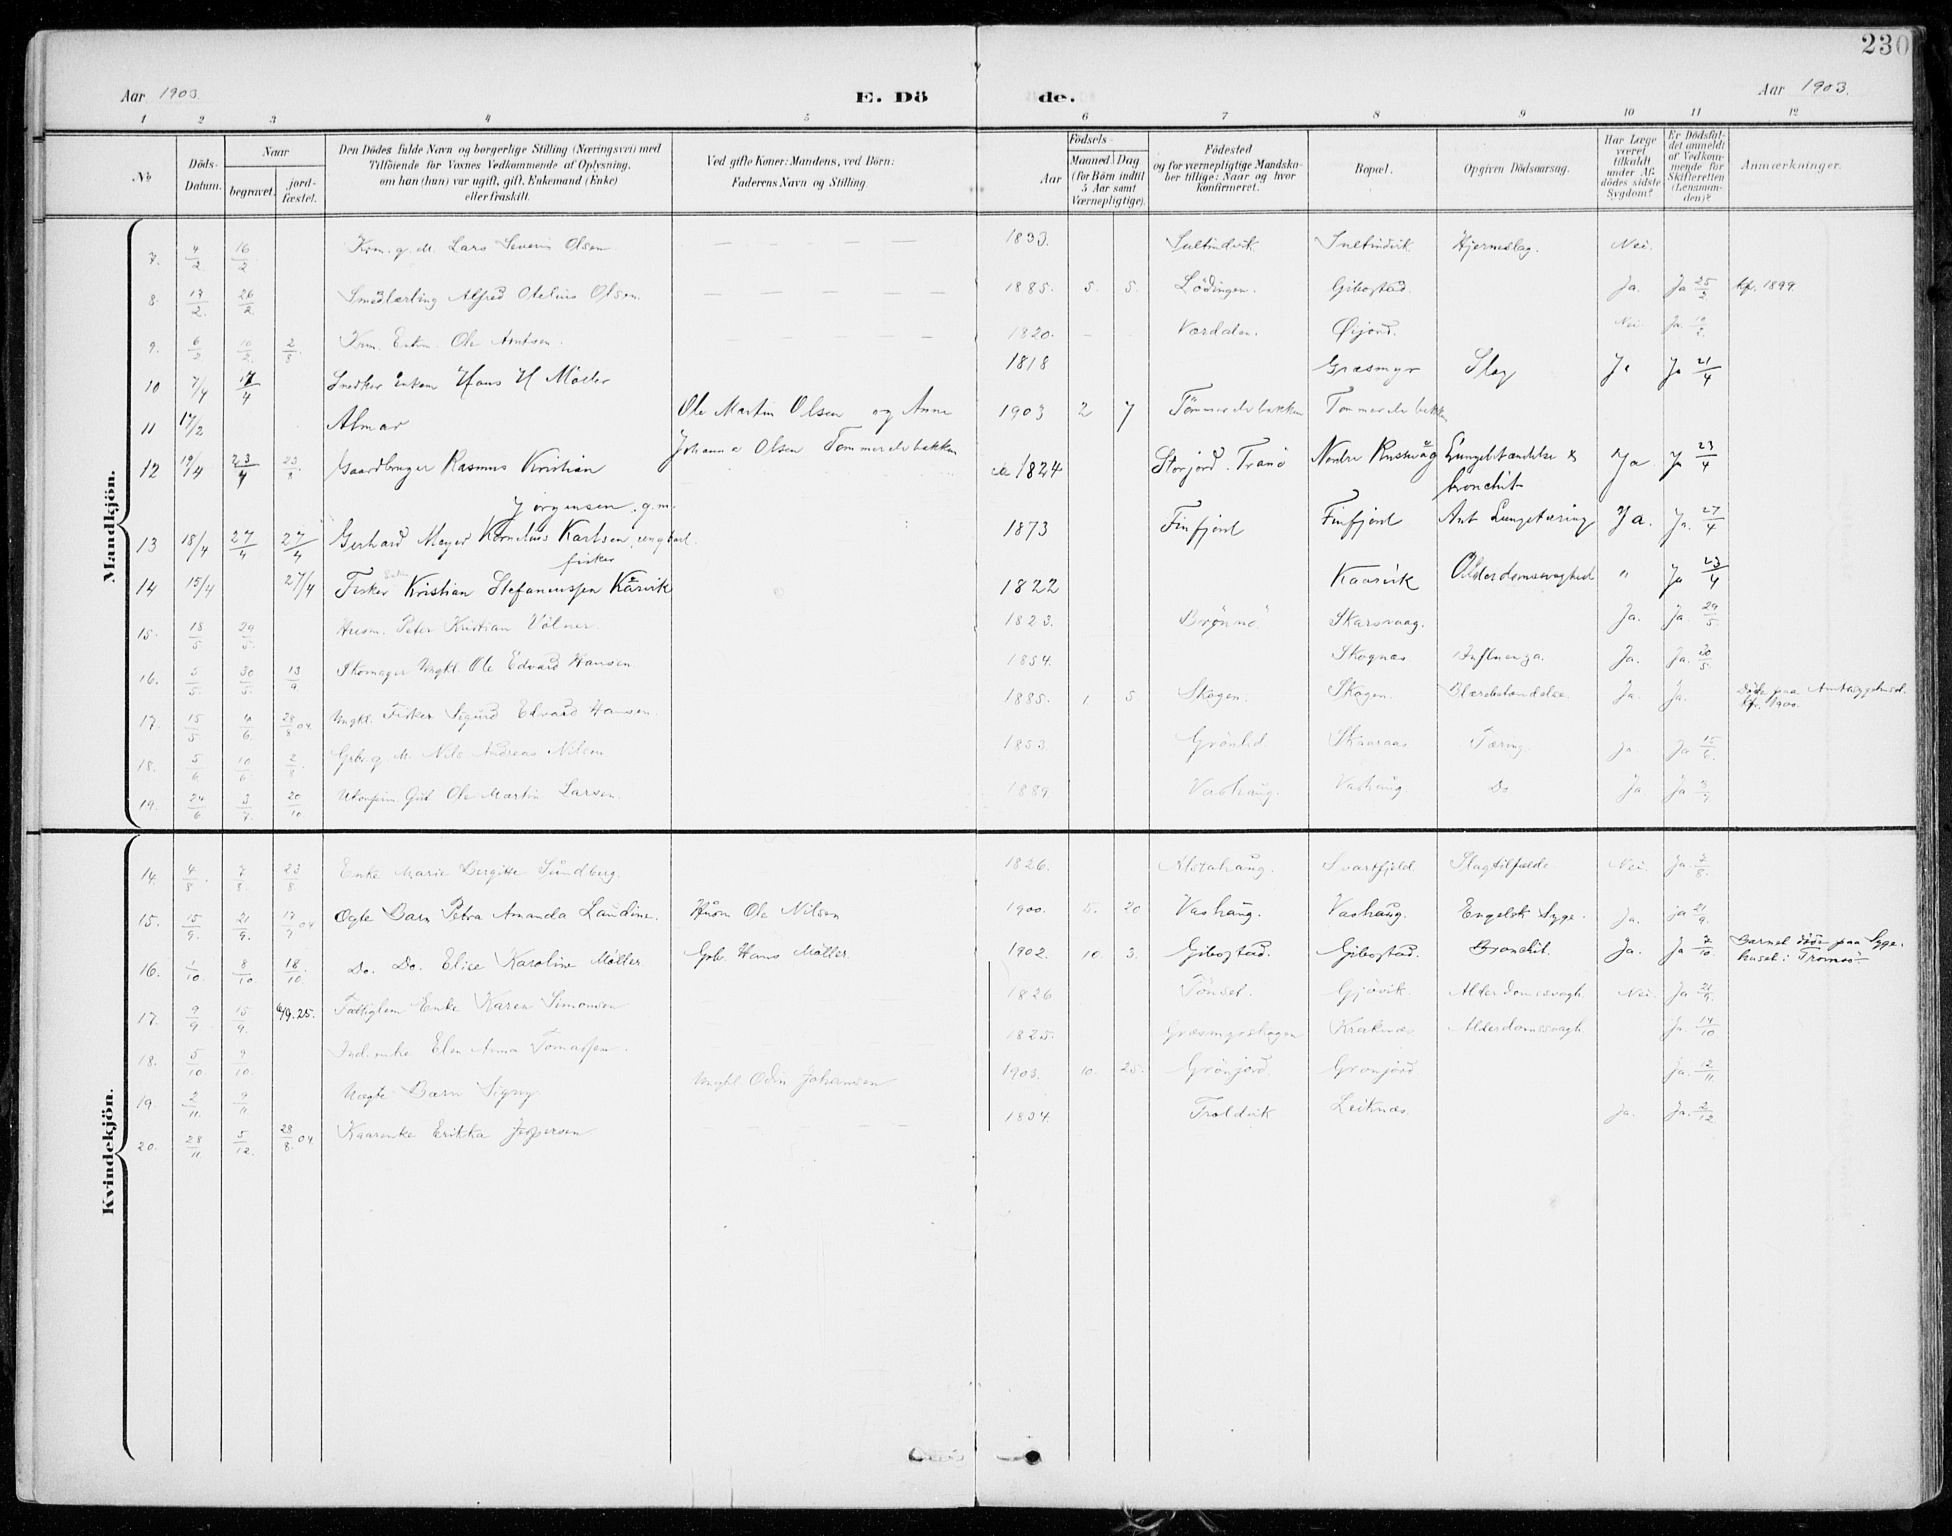 230
Aar 1903.
E. Dö
de.
Aar 1903.
1 2 3 4 5 6 7 8 9 10 11 12
No
Döds-Datum.
Naar
begravet.
jord-fæstet.
Den Dödes fulde Navn og borgerlige Stilling (Næringsvei) med
Tilföiende for Voxnes Vedkommende af Oplysning,
om han (hun) var ugift, gift, Enkemand (Enke)
eller fraskilt.
Ved gifte Koner: Mandens, ved Börn:
Faderens Navn og Stilling
Födsels-
Aar
Maaned
Dag
(for Börn indtil
5 Aar samt
Værnepligtige).
Födested
og for værnepligtige Mandska-
ber tillige: Naar og hvor
konfirmeret.
Bopæl.
Opgiven Dödsaarsag.
Har Læge
været
tilkaldt
under Af-
dödes sidste
Sygdom?
Er Dödsfal-
det anmeldt
af Vedkom-
mende for
Skifteretten
(Lensman-
den)?
Anmærkninger.
Mandkjön.
7. 4/2 16/2 Krm. g. M. Lars Severin Olsen 1833. Sultindvik Sultindvik Hjerneslag. Nei.
8. 17/2. 26/2. Smedlærling Alfred Otelius Olsen. 1885. 5. 5. Lödingen. Gibostad. Ja. Ja 25/2. Kf. 1899.
9. 6/2 10/2. 2/8. Krm. Enkm. Ole Arntsen. 1820. Værdalen. Øijord. Nei Ja. 10/2.
10 7/4 17/4 Snedker Enkem Hans H Möller 1818 Græsmyr Slag Ja Ja 21/4
11 17/2 Almar Ole Martin Olsen og Anne 1903 2 7 Tömmerelvbakken Tommerelvbakken
Johanna Olsen Tommerelvbakken
12 19/4 23/4 23/8 Gaardbruger Rasmus Kristian ca 1824 Storjord. Tranö Nordre Rusevåg Lungebetændelse & Ja. Ja 23/4
Jörgensen. g.m. bronchit
13 18/4 27/4 27/4 Gerhard Meyer Kornelius Karlsen, ungkarl. 1873 Finfjord Finfjord Ant Lungetæring Ja. Ja. 27/4
fisker
14 15/4 27/4 Fisker Kristian Stefanussen Kårvik 1822 Kaarvik Alderdomssvaghed " Ja 23/4
15. 18/5 29/5. Husm. Peter Kristian Völner. 1823. Brönnö Skarsvaag. Ja. Ja 29/5.
16. 5/5. 30/5. 13/9 Skomager Ungkl. Ole Edvard Hansen 1854. Skognæs Influenza. Ja. Ja. 30/5.
17. 15/5. 4/6. 28/8 04. Ungkl. Fisker Sigurd Edvard Hansen. 1885. 1. 5 Skogen. Skogen. Blærebetændelse. Ja. Ja. Döde paa Amtssygehuset.
Kf. 1900.
18. 5/6 10/6. 2/8. Grbr. g. M. Nils Andreas Nilsen 1853. Grönlid Skaaraas. Tæring. Ja. Ja 15/6.
19. 24/6. 3/7. 20/10 Ukonfirm. Gut Ole Martin Larsen. 1889 Vashaug. Vashaug Do Ja Ja 3/7
Kvindekjön.
14. 4/8. 7/8. 23/8. Enke Marie Bergitte Sundberg. 1826. Alstahaug. Svartfjeld. Slagtilfælde Nei. Ja. 3/8.
15. 15/9. 21/9. 17/7 04 Ægte Barn Petra Amanda Laudine. Husm Ole Nilsen 1900. 5. 20 Vashaug. Vashaug. Engelsk Syge. Ja. ja 21/9.
16. 1/10 8/10 18/10. Do. Do. Elise Karoline Möller Grb. Hans Möller. 1902. 10. 3. Gibostad. Gibostad. Bronchit. Ja. Ja 7/10. Barnet döde paa Syge-
huset i Tromsö
17. 9/9. 15/9. 6/9.25. Fattiglem Enke Karen Simonsen 1826 Tönset. Gjövik. Alderdomssvagh. Nei. Ja 21/9.
18. 5/10 9/10. Ind. enke Elen Anna Tomassen. 1825. Græsmyrskogen Kræknæs Alderdomssvagh. Ja 14/10
19. 2/11. 9/11 Uægte Barn Signy. Ungkl Odin Johansen 1903. 10. 25. Grönjord. Gronjord ja. 12/11.
20. 28/11. 5/12. 28/8. 04 Kaarenke Erikka Jespersen 1834. Troldvik Leiknæs. ja. Ja. 2/12